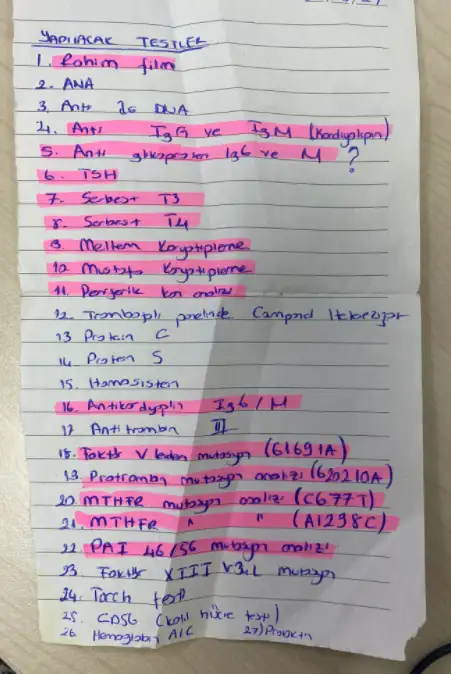 YAPILACAK TESTLER
1. Rahim film
2. ANA
3. Anti ds DNA
4. Anti IgG ve IgM (Kardiyolipin)
5. Anti glikoprotein IgG ve M ?
6. TSH
7. Serbest T3
8. Serbest T4
9. Meltem Karyotipleme
10. Mustafa Karyotipleme
11. Periferik kan analizi
12. Trombofili panelinde
13 Protein C
14. Protein S
15. Homosistein
16. Antikardiyolipin IgG / M
17 Antitrombin III
18. Faktör V leiden mutasyon (G1691A)
19. Protrombin mutasyon analizi (G20210A)
20. MTHFR mutasyon analizi (C677T)
21. MTHFR " " (A1298C)
22. PAI 4G/5G mutasyon analizi
23 Faktör XIII V34L mutasyon
24. Torch testi
25. (kök hücre testi)
26 Hemoglobin A1C 27) Prolaktin